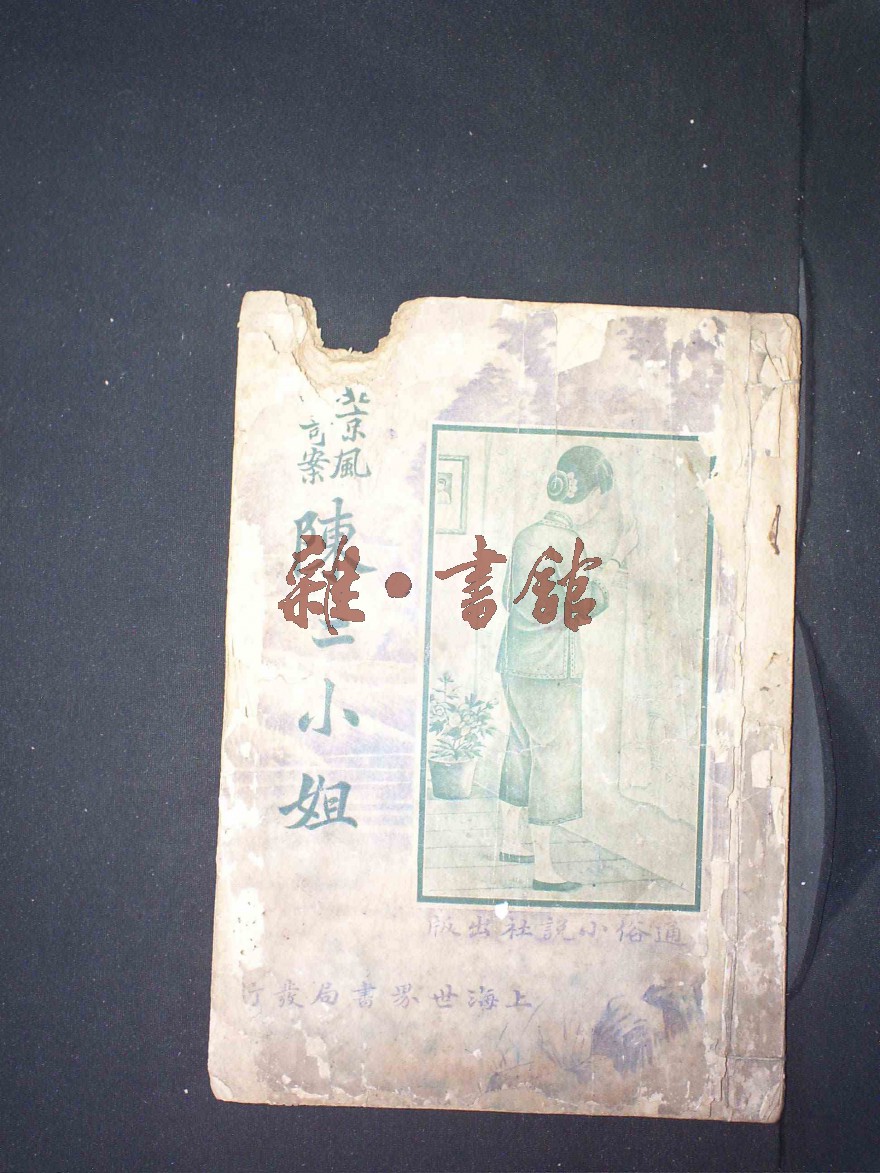 北京風
司案
陳小姐
雜·書館
通俗小說社出版
上海世界書局發行